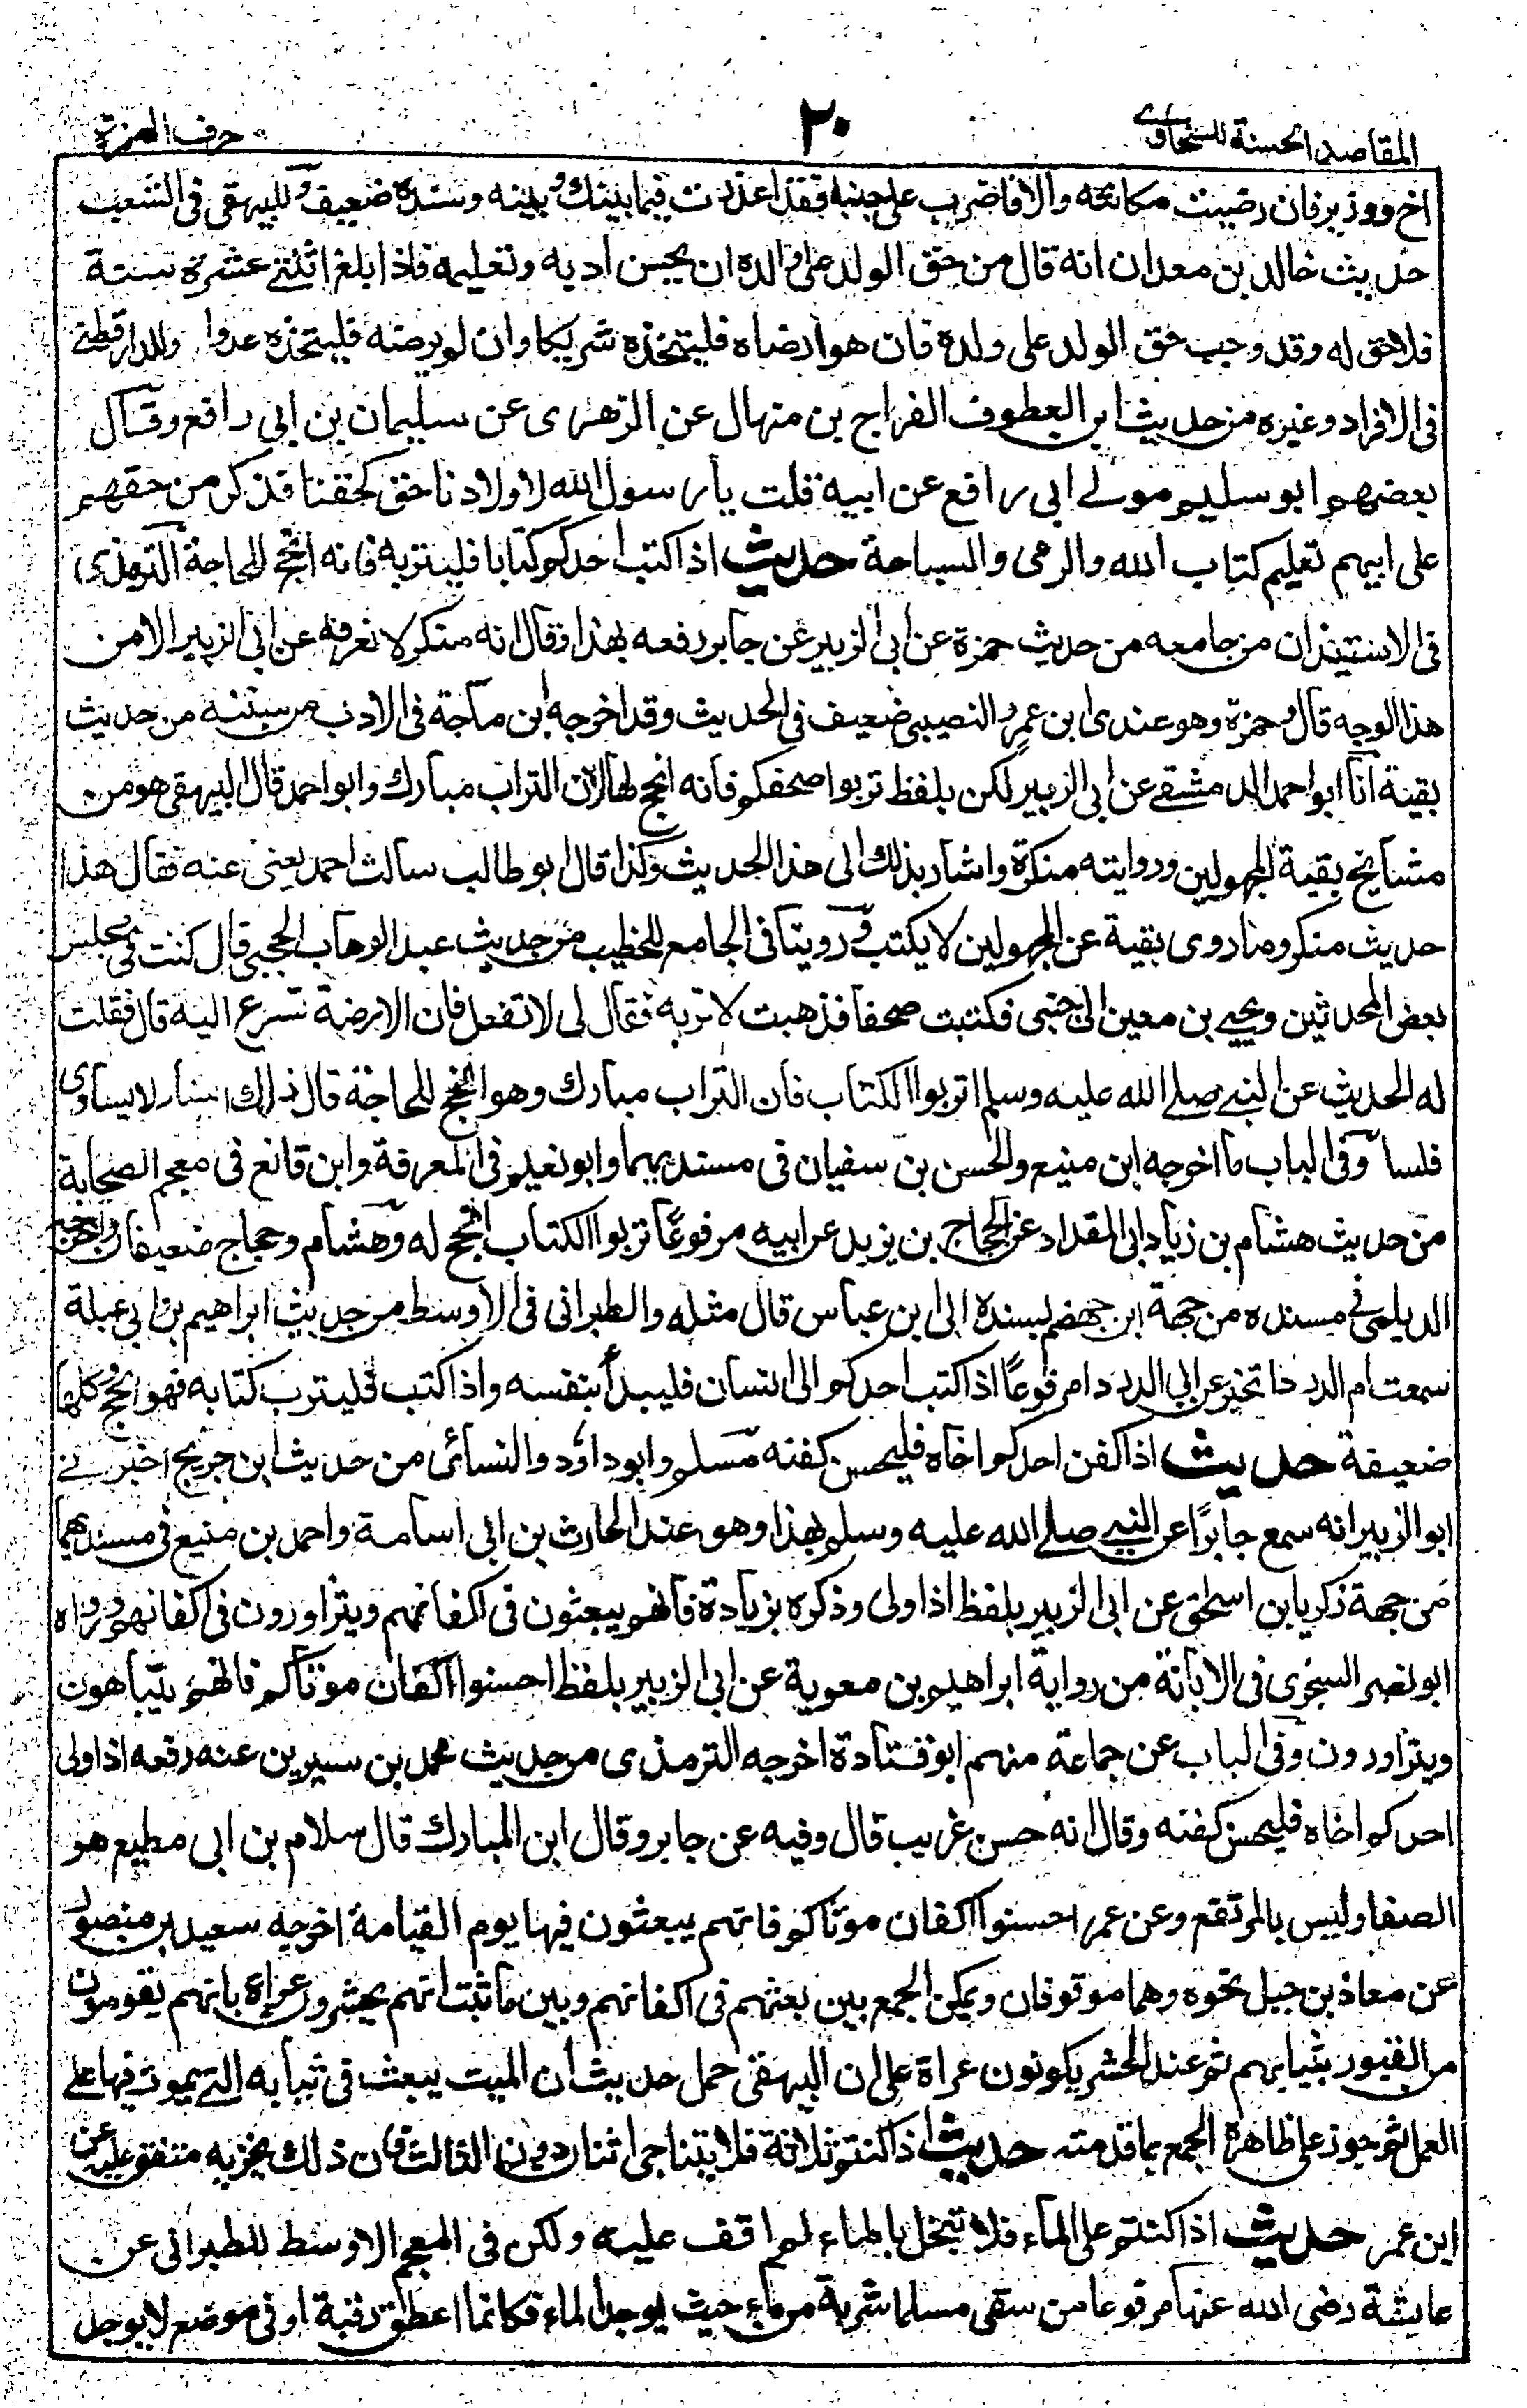 المقاصد الحسنة للسخاوى
٢٠
حرف الهمزة
اخ ووزير فان رضيت مكانته والا فاضرب على جنبه فقد اعذرت فيما بينك وبينه وسنده ضعيف وللبيهقى فى الشعب
حديث خالد بن معدان انه قال من حق الولد على والده ان يحسن ادبه وتعليمه فاذا بلغ اثنتى عشرة سنة
فلا حق له وقد وجب حق الوالد على ولده فان هو ارضاه فليتخذه شريكا وان لم يرضه فليتخذه عدوا وللدارقطنى
فى الافراد وغيره من حديث ابى العطوف الجراح بن منهال عن الزهرى عن سليمان بن ابى رافع وقال
بعضهم ابو سليم مولى ابى رافع عن ابيه قلت يا رسول الله لاولادنا حق كحقنا فذكر من حقهم
على ابيهم تعليم كتاب الله والرمى والسباحة حديث اذا كتب احدكم كتابا فليتربه فانه انجح للحاجة الترمذى
فى الاستيذان من جامعه من حديث حمزة عن ابى الزبير عن جابر رفعه بهذا وقال انه منكر لا نعرفه عن ابى الزبير الا من
هذا الوجه قال وحمزة وهو عندى ابن عمرو النصيبى ضعيف فى الحديث وقد اخرجه ابن ماجة فى الادب من سننه من حديث
بقية انا ابو احمد الدمشقى عن ابى الزبير لكن بلفظ تربوا صحفكم فانه انجح لها لان التراب مبارك وابو احمد قال البيهقى هو من
مشايخ بقية المجهولين وروايته منكرة واشار بذلك الى هذا الحديث وكذا قال ابو طالب سالت احمد يعنى عنه فقال هذا
حديث منكر وما روى بقية عن المجهولين لا يكتب وروينا فى الجامع للخطيب من حديث عبد الوهاب الحجبى قال كنت فى مجلس
بعض المحدثين ويحيى بن معين الى جنبى فكتبت صحفا فذهبت لا تربه فقال لى لا تفعل فان الارضة تسرع اليه قال فقلت
له الحديث عن النبى صلى الله عليه وسلم اتربوا الكتاب فان التراب مبارك وهو انجح للحاجة قال ذلك اسناد لا يساوى
فلسا وفى الباب ما اخرجه ابن منيع والحسن بن سفيان فى مسنديهما وابو نعيم فى المعرفة وابن قانع فى معجم الصحابة
من حديث هشام بن زياد ابى المقداد عن الحجاج بن يزيد عن ابيه مرفوعا تربوا الكتاب انجح له وهشام وحجاج ضعيفان واخرج
الديلمى فى مسنده من جهة ابن جهضم بسنده الى ابن عباس قال مثله والطبرانى فى الاوسط من حديث ابراهيم بن ابى عبلة
سمعت ام الدرداء تخبر عن ابى الدرداء مرفوعاً اذا كتب احدكم الى انسان فليبدأ بنفسه واذا كتب فليترب كتابه فهو انجح وكلها
ضعيفة حديث اذا كفن احدكم اخاه فليحسن كفنه مسلم وابو داؤد والنسائى من حديث ابن جريج اخبرنى
ابو الزبير انه سمع جابرًا عن النبى صلى الله عليه وسلم بهذا وهو عند الحارث بن ابى اسامة واحمد بن منيع فى مسنديهما
من جهة زكريا بن اسحق عن ابى الزبير بلفظ اذا ولى وذكره بزيادة فانهم يبعثون فى اكفانهم ويتزاورون فى اكفانهم ورواه
ابو نصر السجزى فى الابانة من رواية ابراهيم بن معوية عن ابى الزبير بلفظ احسنوا اكفان موتاكم فانهم يتباهون
ويتزاورون وفى الباب عن جماعة منهم ابو قتادة اخرجه الترمذى من حديث محمد بن سيرين عنه رفعه اذا ولى
احدكم اخاه فليحسن كفنه وقال انه حسن غريب قال وفيه عن جابر وقال ابن المبارك قال سلام بن ابى مطيع هو
الصفا وليس بالمرتفع وعن عمر احسنوا اكفان موتاكم فانهم يبعثون فيها يوم القيامة اخرجه سعيد بن منصور
عن معاذ بن جبل نحوه وهما موقوفان ويمكن الجمع بين بعثهم فى اكفانهم وبين ما ثبت انهم يحشرون عراة بانهم يقومون
من القبور بثيابهم ثم عند الحشر يكونون عراة على ان البيهقى حمل حديث ان الميت يبعث فى ثيابه التى يموت فيها على
العمل ثم جوز على ظاهره الجمع بما قدمته حديث اذا كنتم ثلاثة فلا يتناجى اثنان دون الثالث فان ذلك يحزنه متفق عليه عن
ابن عمر حديث اذا كنتم على الماء فلا تبخل بالماء لم اقف عليه ولكن فى المعجم الاوسط للطبرانى عن
عايشة رضى الله عنها مرفوعا من سقى مسلما شربة من ماء حيث يوجد الماء فكانما اعطق رقبة او فى موضع لا يوجد